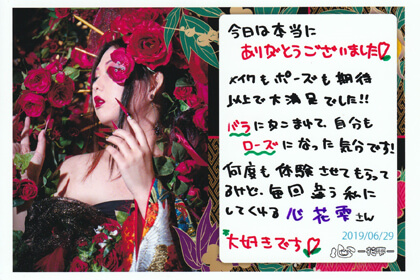 今日は本当に
ありがとうございました♡
メイクもポーズも期待
以上で大満足でした!!
バラに囲まれて、自分も
ローズになった気分です!
何度も体験させてもらって
るけど、毎回違う私に
してくれる心花雫さん
大好きです♡
2019/06/29
心花雫